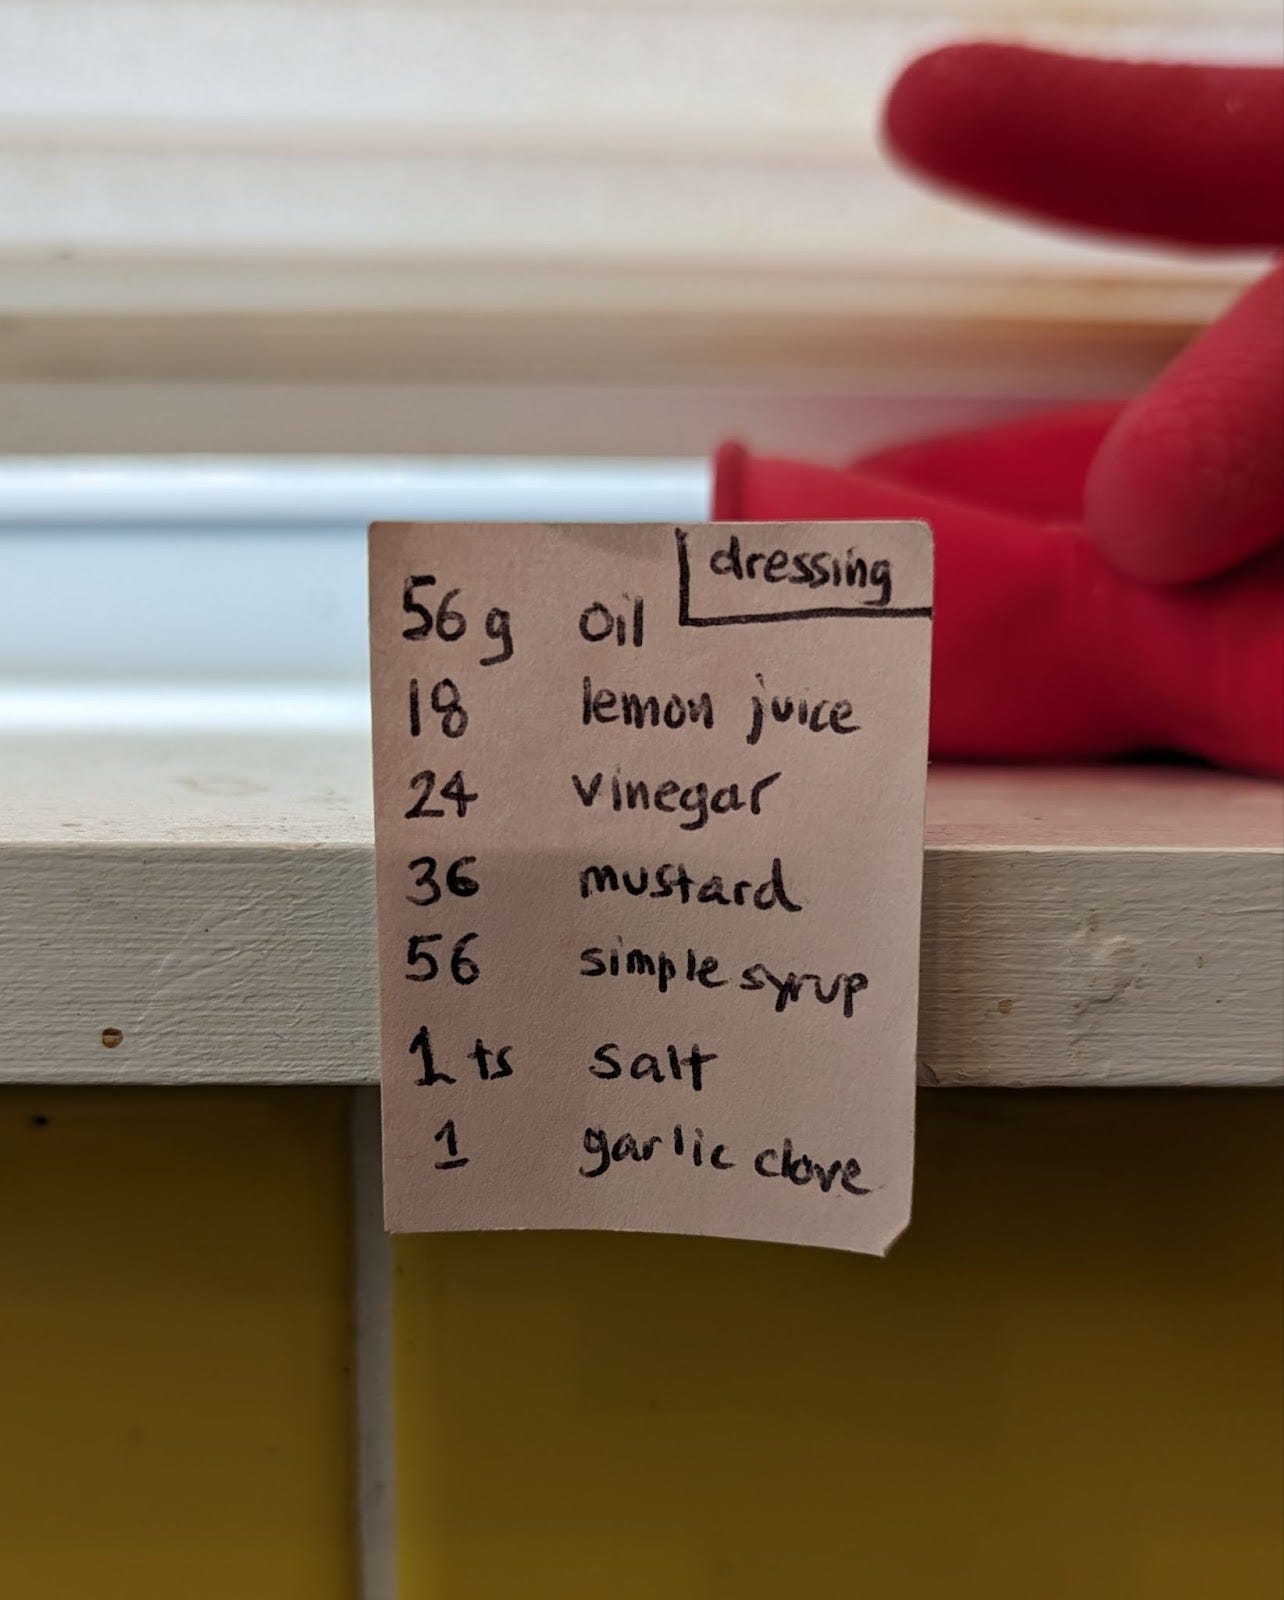 dressing
56g oil
18 lemon juice
24 vinegar
36 mustard
56 simple syrup
1 ts salt
1 garlic clove